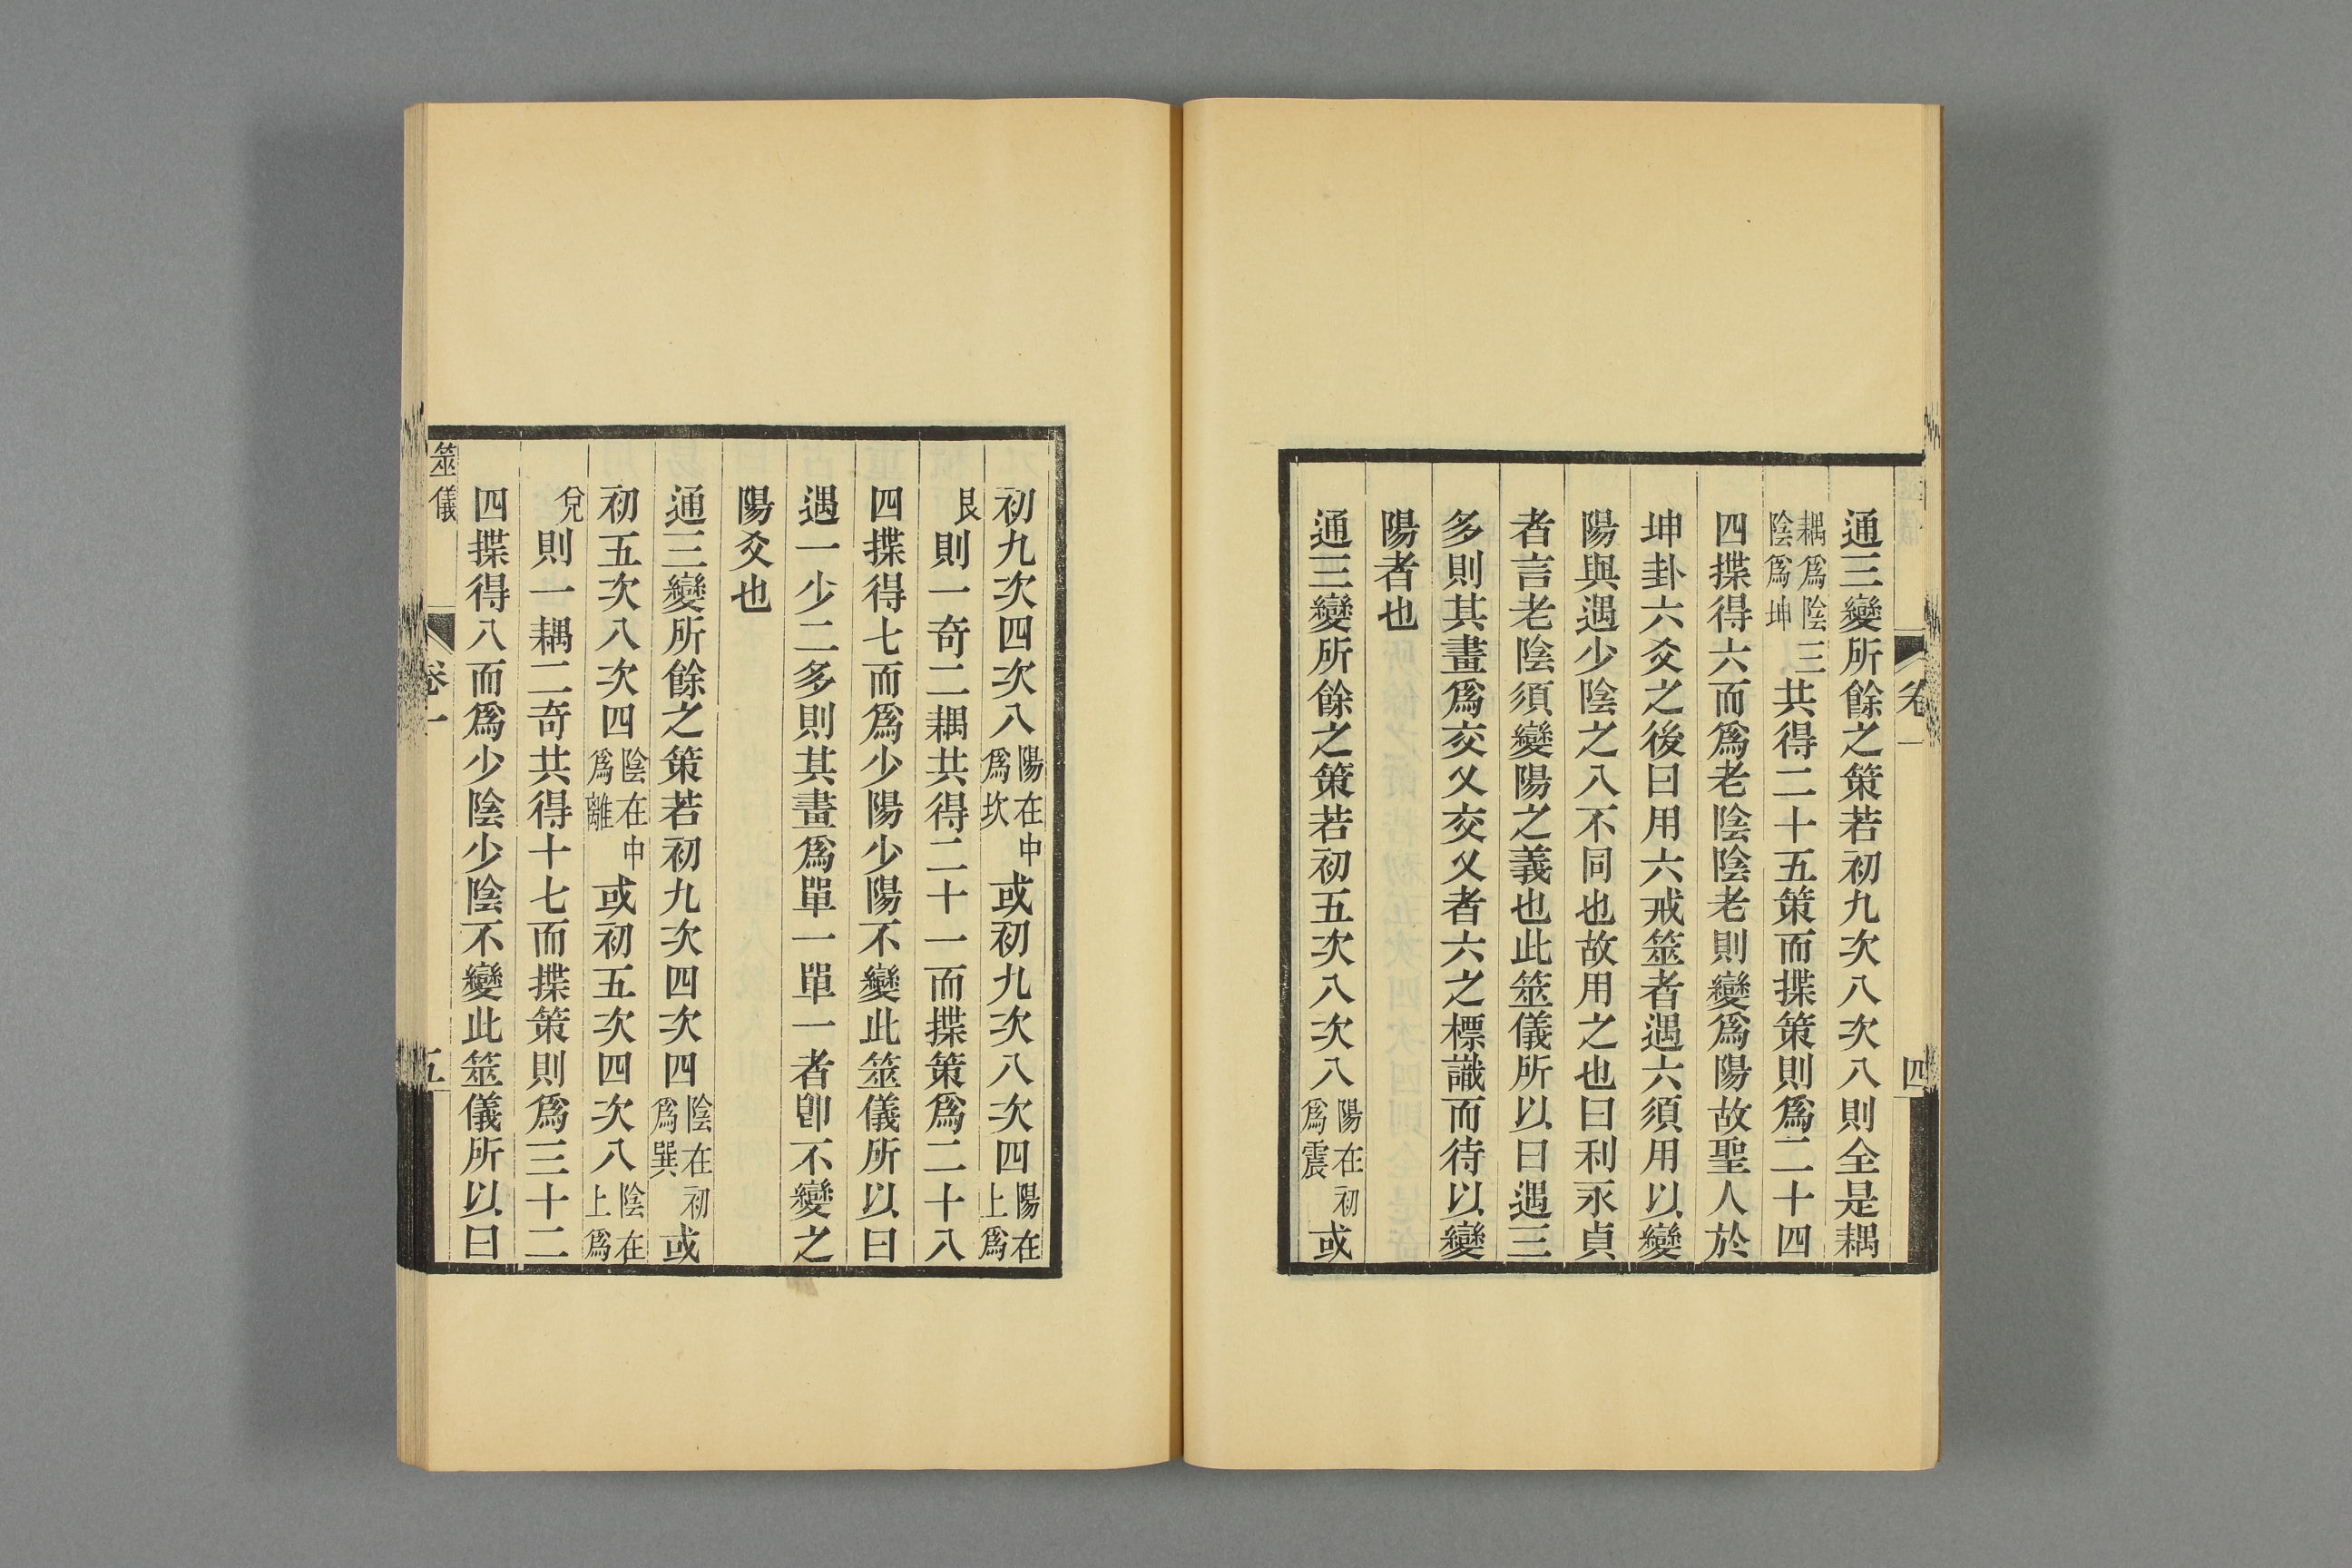 通三變所餘之策若初九次八次八則全是耦
耦爲陰三陰爲坤共得二十五策而揲策則爲二十四
四揲得六而爲老陰陰老則變爲陽故聖人於
坤卦六爻之後曰用六戒筮者遇六須用以變
陽與遇少陰之八不同也故用之也曰利永貞
者言老陰須變陽之義也此筮儀所以曰遇三
多則其畫爲交乂交乂者六之標識而待以變
陽者也
通三變所餘之策若初五次八次八陽在初爲震或
卷一
四
初九次四次八陽在中爲坎或初九次八次四陽在上爲
艮則一奇二耦共得二十一而揲策爲二十八
四揲得七而爲少陽少陽不變此筮儀所以曰
遇一少二多則其畫爲單一單一者卽不變之
陽爻也
通三變所餘之策若初九次四次四陰在初爲巽或
初五次八次四陰在中爲離或初五次四次八陰在上爲
兌則一耦二奇共得十七而揲策則爲三十二
四揲得八而爲少陰少陰不變此筮儀所以曰
筮儀
卷一
五